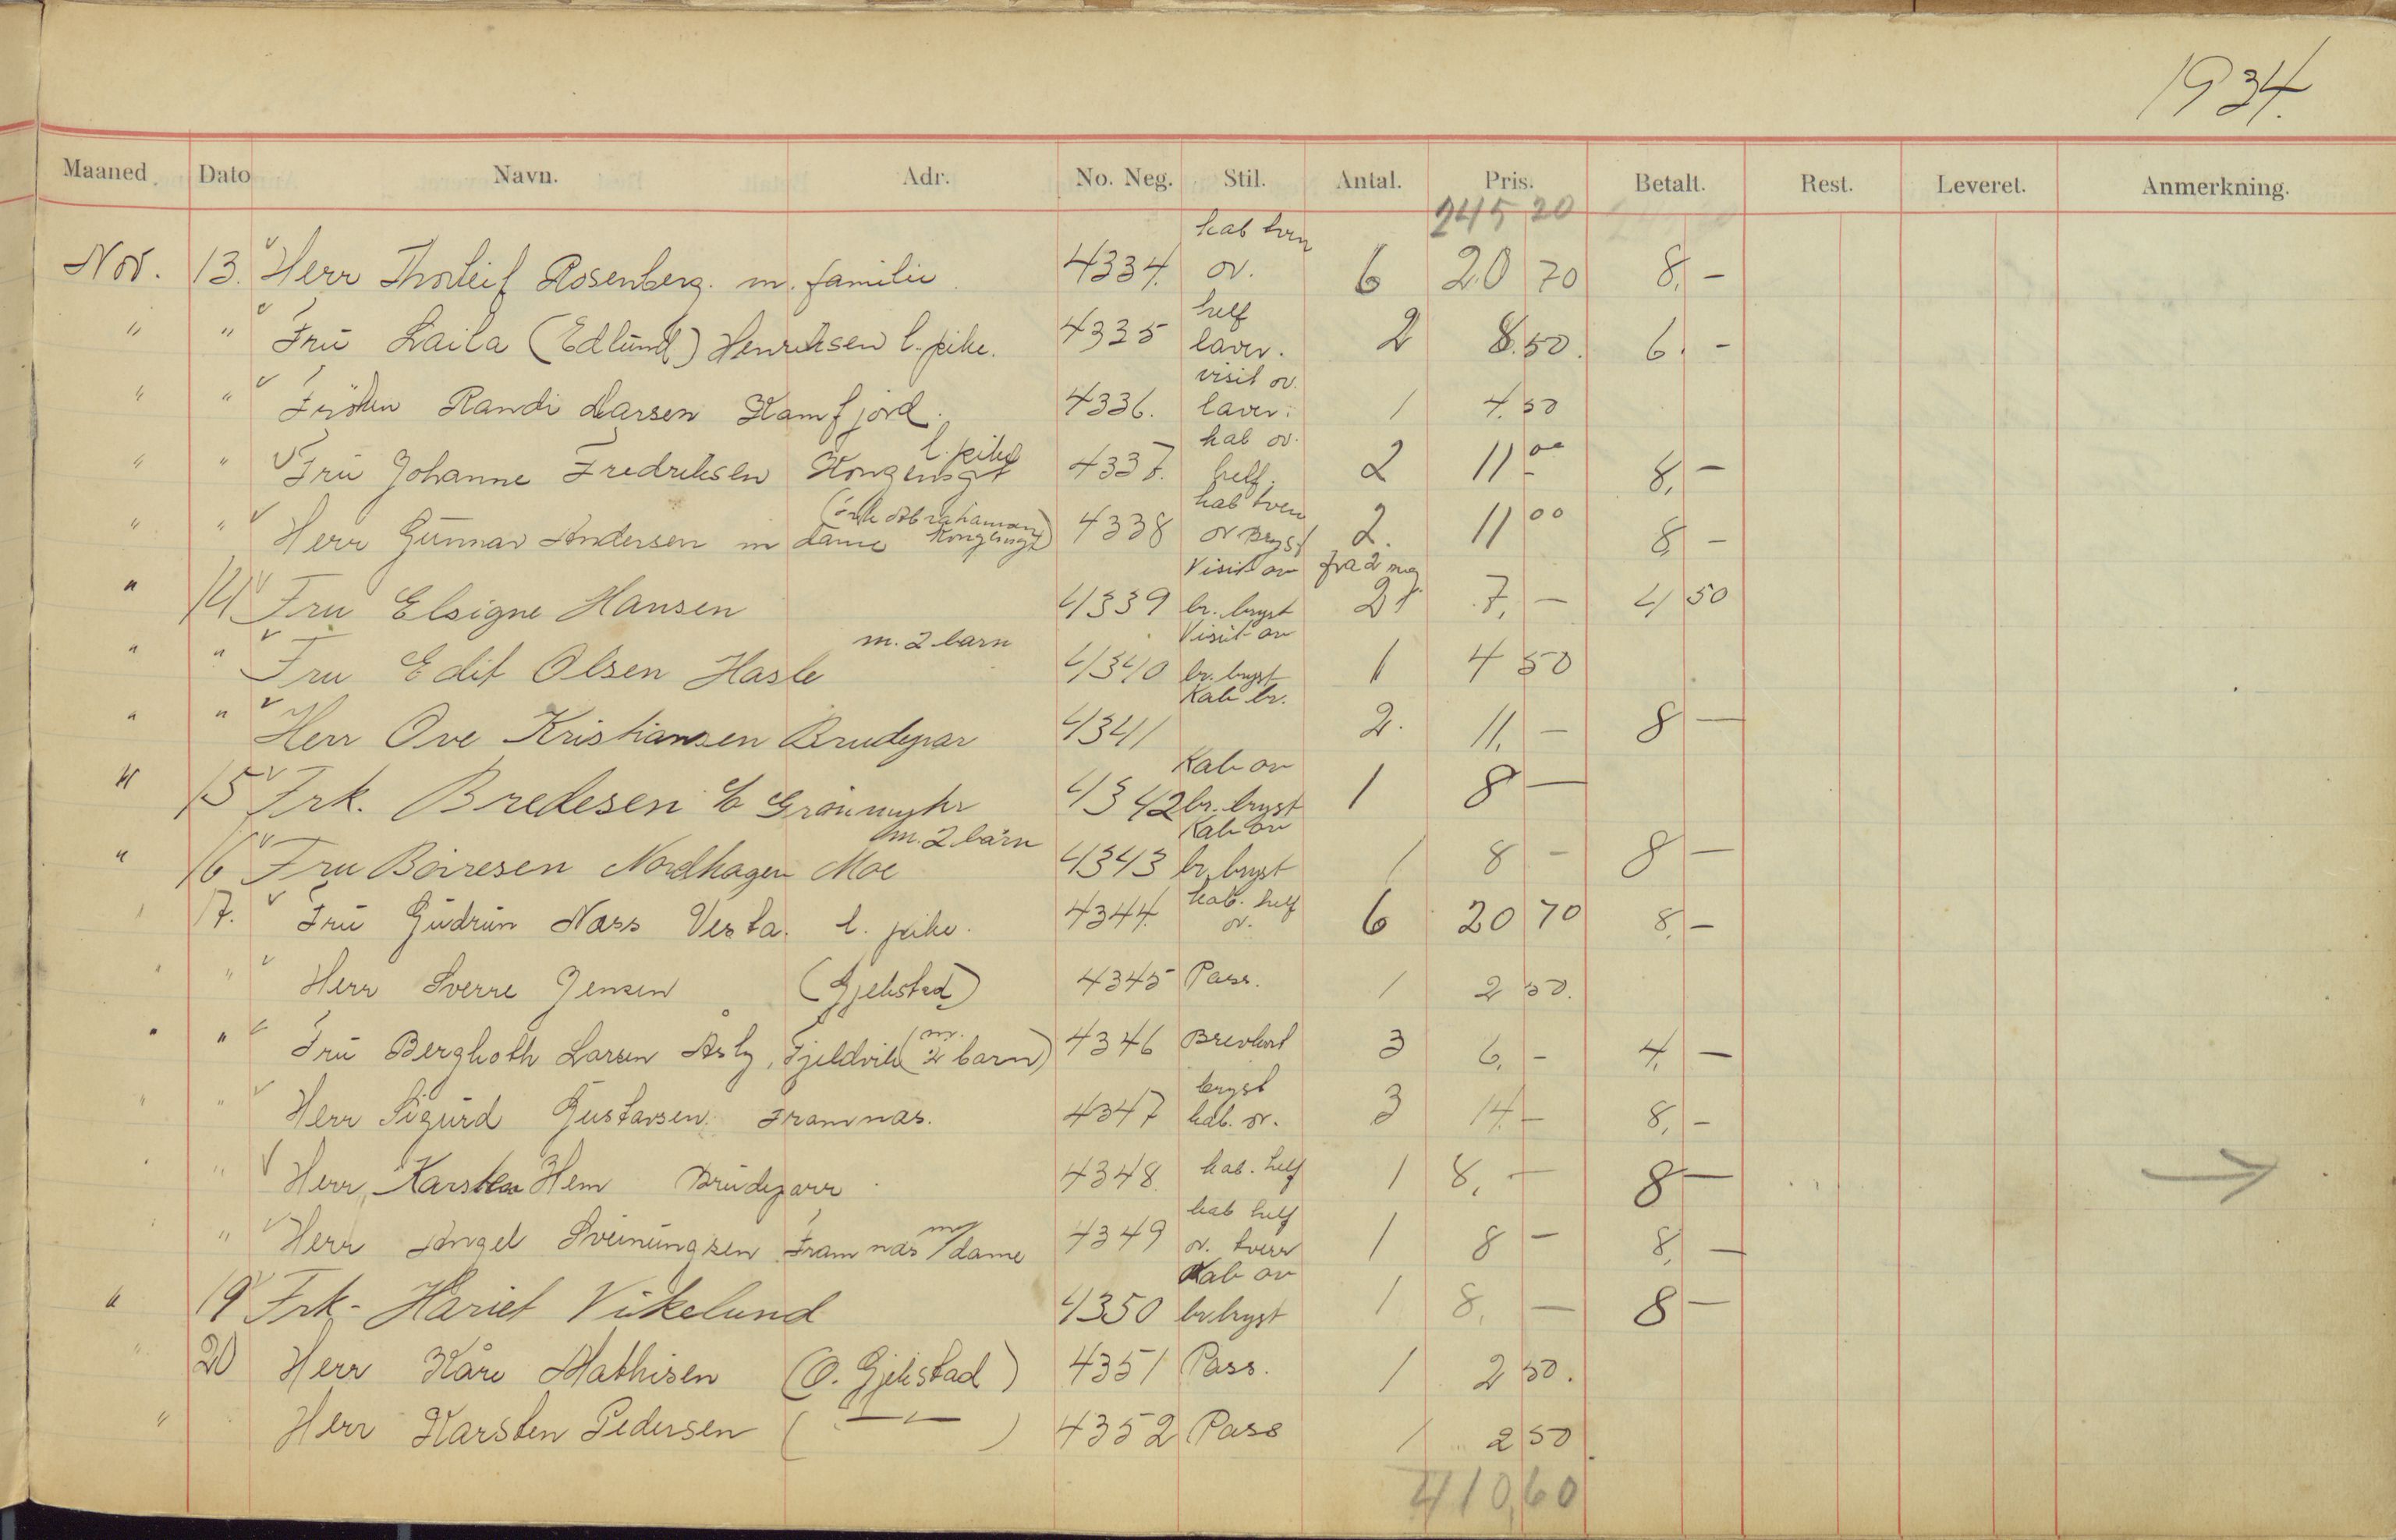 1934.
Maaned Dato Navn. Adr. No. Neg. Stil. Antal. Pris. Betalt. Rest. Leveret. Anmerkning.
245 20
kab tver
Nov. 13. Herr Thorleif Rosenberg. m. familie 4334. ov. 6 20 70 8, -
helf
" " Fru Laila (Edlund) Henriksen l. pike. 4335 laver. 2 8.50. 6. -
visit ov.
" " Fröken Randi Larsen Kamfjord. 4336. laver. 1 4.50
l. pike kab ov.
" " Fru Johanne Fredriksen Kongensgt 4337. helf. 2 11 00 8, -
kab tver
" " Herr Gunnar Andersen m dame Kongensgt) 4338 ov Bryst 2. 11 00 8, -
Visit ov fra 2 neg
" 14 Fru Elsigne Hansen 4339 br. bryst 2 7, - 4 50
m. 2 barn Visit ov
" " Fru Edit Olsen Hasle 4340 br. bryst 1 4 50
Kab br.
" " Herr Ove Kristiansen Brudepar 4341 2. 11, - 8 -
Kab ov
" 15 Frk. Bredesen Grönmyhr 4342 br. bryst 1 8 -
m. 2 barn Kab ov
" 16 Fru Boiresen Nordhagen Moe 4343 br. bryst 1 8 - 8 -
kab. helf
17. Fru Gudrun Nass Vesta. l. pike. 4344. ov. 6 20 70 8, -
" " Herr Sverre Jensen (Gjekstad) 4345 Pass. 1 2 50.
m.
" " Fru Berghoth Larsen Åsly, Fjeldvik (2 barn) 4346 Brevkort 3 6, - 4, -
bryst
" " Herr Sigurd Gustavsen. Framnas. 4347 kab. ov. 3 14 - 8, -
" " Herr, Karsten Hem Brudeparr 4348 kab. helf 1 8, - 8 -
m/ kab helf
" " Herr Angel Sveinungsen Framnas dame 4349 ov. tverr 1 8 - 8, -
Kab ov
" 19 Frk - Hariet Vikelund 4350 br. bryst 1 8, - 8 -
" 20 Herr Kåre Mathisen (O. Gjekstad) 4351 Pass. 1 2 50.
" Herr Karsten Pedersen ( — " — ) 4352 Pass 1 2 50
410,60